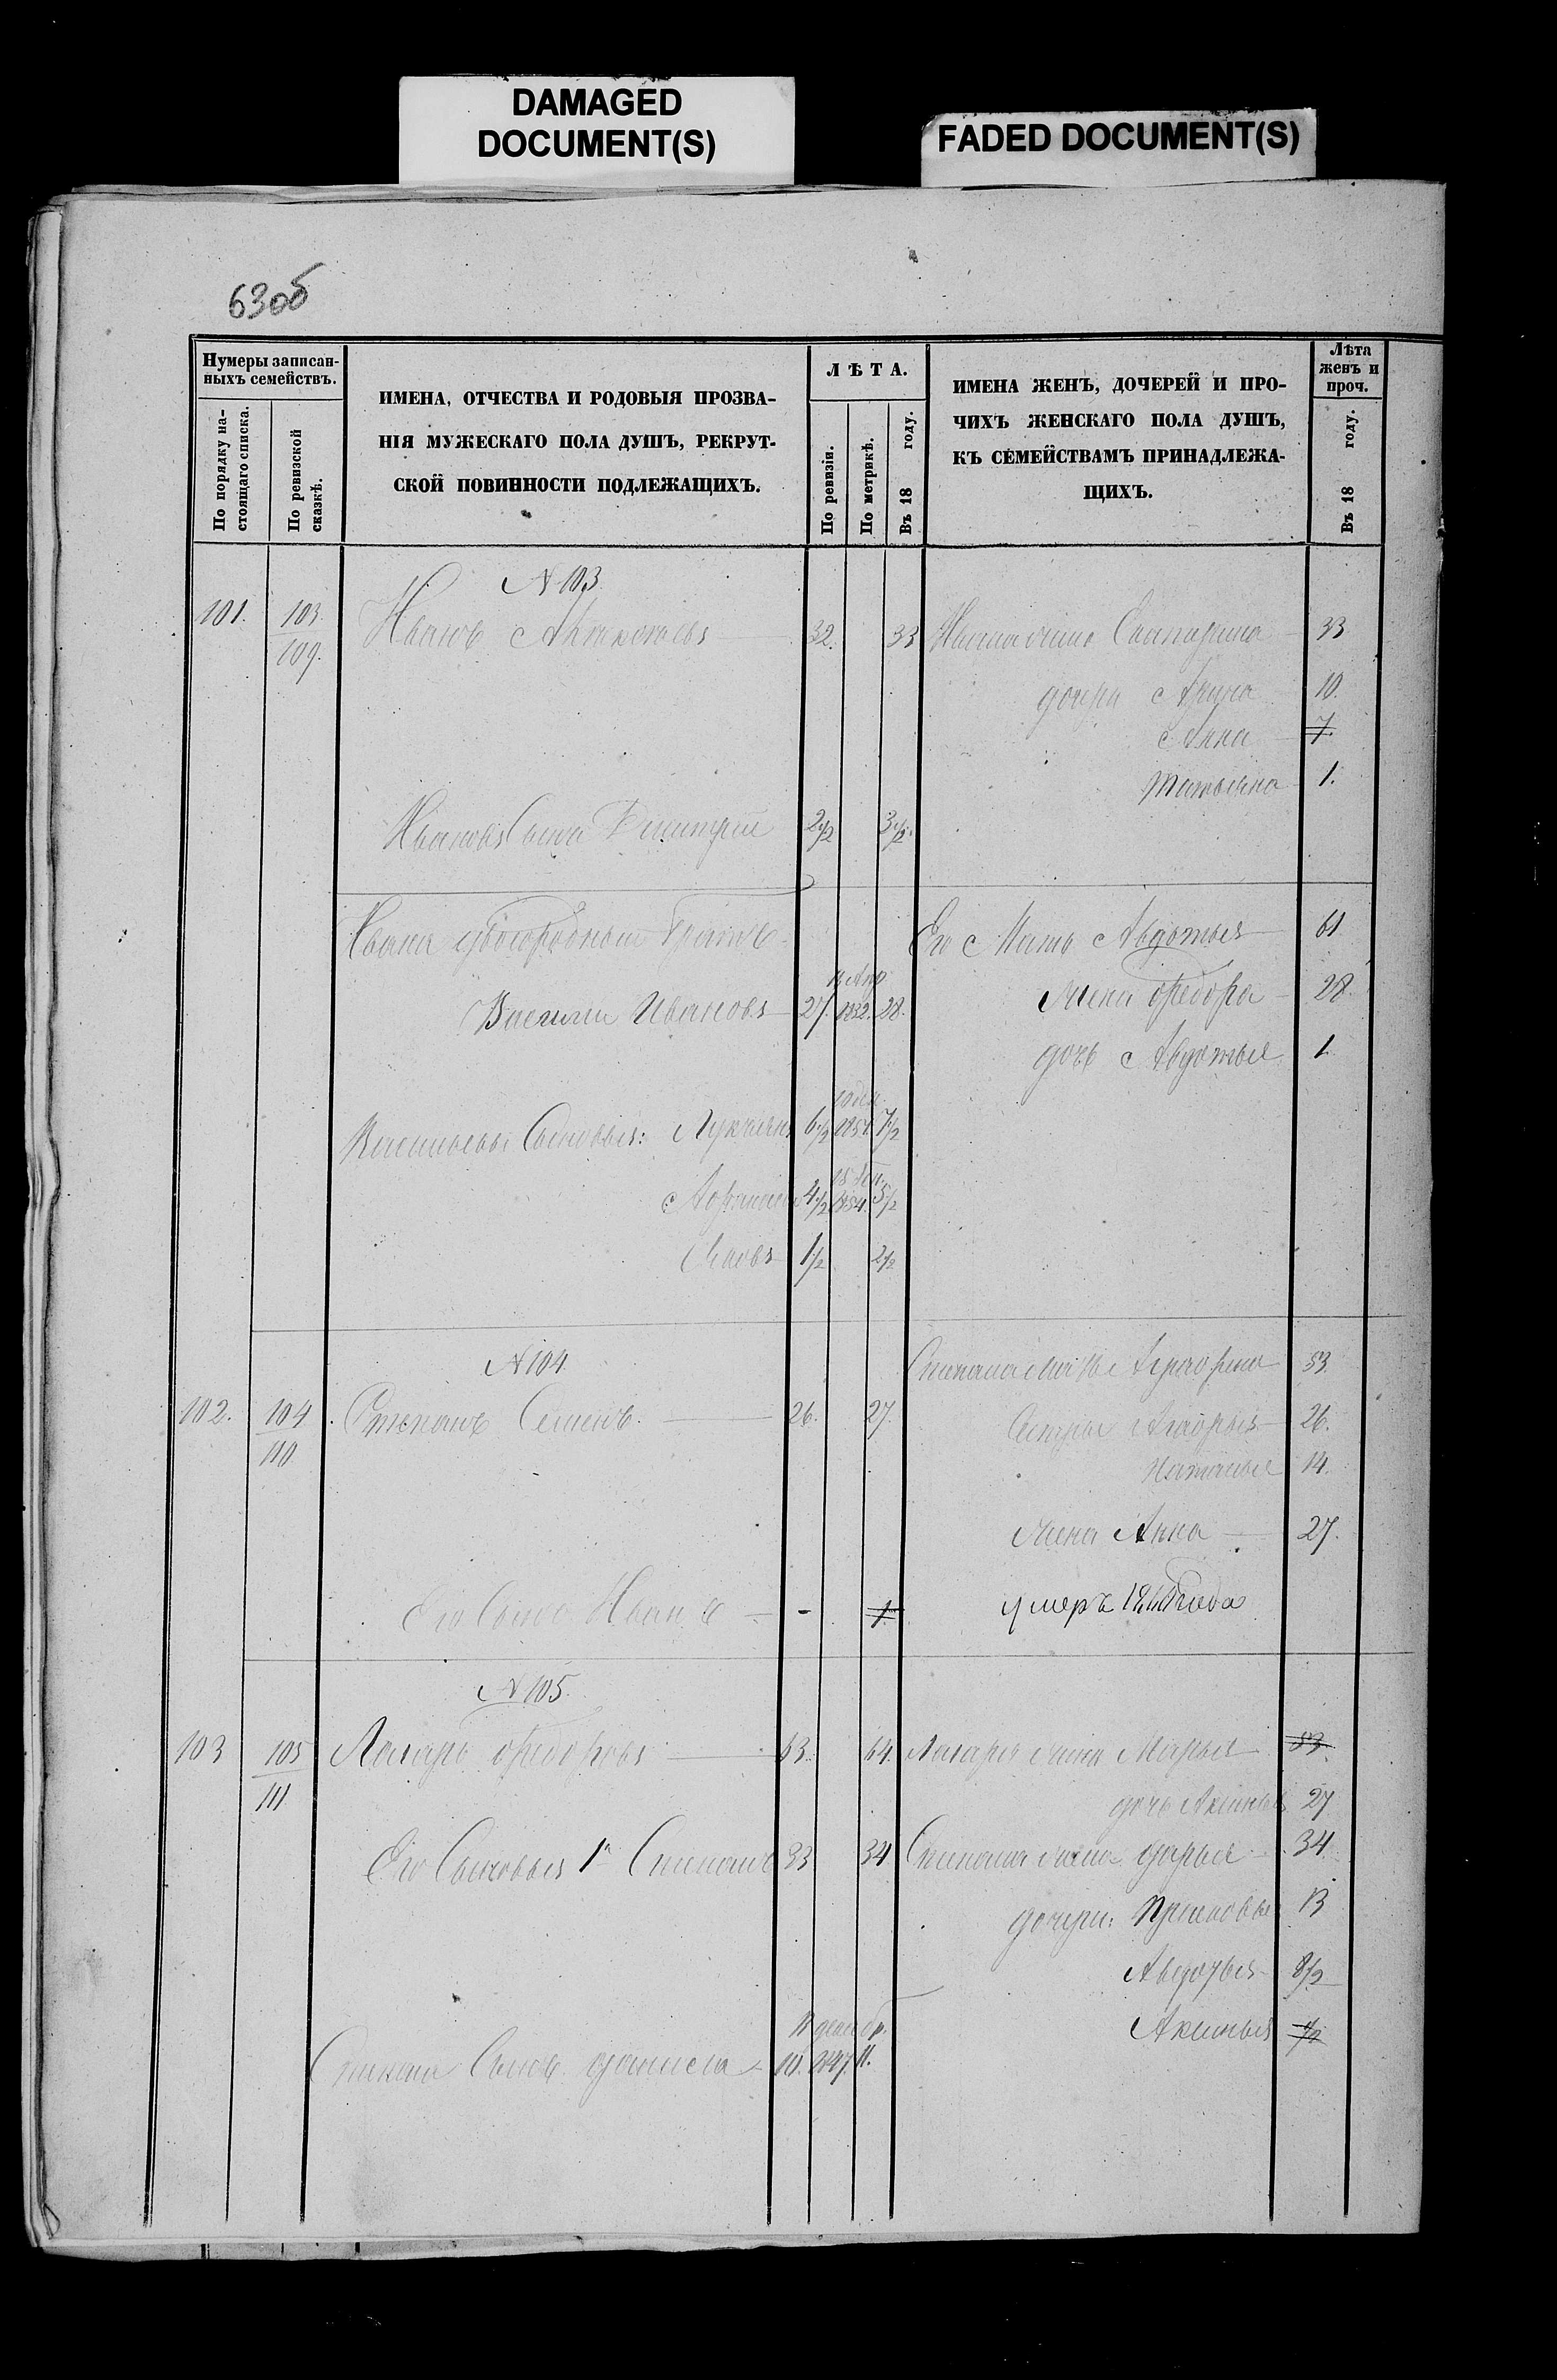 DAMAGED
DOCUMENT(S)
FADED DOCUMENT(S)
63об
Нумеры записан-
ныхъ семействъ.
По порядку на-
стоящаго списка.
По ревизской
сказкѣ.
ИМЕНА, ОТЧЕСТВА И РОДОВЫЯ ПРОЗВА-
НІЯ МУЖЕСКАГО ПОЛА ДУШЪ, РЕКРУТ-
СКОЙ ПОВИННОСТИ ПОДЛЕЖАЩИХЪ.
ЛѢТА.
По ревизіи.
По метрикѣ.
Въ 18 году.
ИМЕНА ЖЕНЪ, ДОЧЕРЕЙ И ПРО-
ЧИХЪ ЖЕНСКАГО ПОЛА ДУШЪ,
КЪ СЕМЕЙСТВАМЪ ПРИНАДЛЕЖА-
ЩИХЪ.
Лѣта
женъ и
проч.
Въ 18 году.
N 103
101. 103 109. Иванъ 32. 33 Ивана жена Екатерина 33
дочери Арина 10.
Анна 7.
Татьяна 1.
Ивановъ сынъ Дмитрей 2 1/2 3 1/2.
Ивана двоюродный братъ Его Мать Авдотья 61
Василий Ивановъ 27. 1832. 28. жена Федора 28.
дочь Авдотья 1
Васильевы Сыновья: Лукьянъ 6 1/2 7 1/2
4 1/2 1854. 5 1/2
Яковъ 1 1/2 2 1/2
N 104
Степана мать 53.
102. 104 110 Степанъ Семенъ. 26. 27. Сестры 26.
Наталья 14.
жена Анна 27.
Его сынъ Иванъ - 1 умеръ года
N 105.
103 105 111 Лазарь Федоровъ 63. 64. Лазаря жена Марья 53.
дочь Аксинья 27
Его Сыновья 1й Степанъ 33 34 Степана жена Дарья 34.
дочери: Прасковья 13
Авдотья 8 1/2
Аксинья 1/2
декабр.
Степана Сынъ Данила 10. 1847. 11.